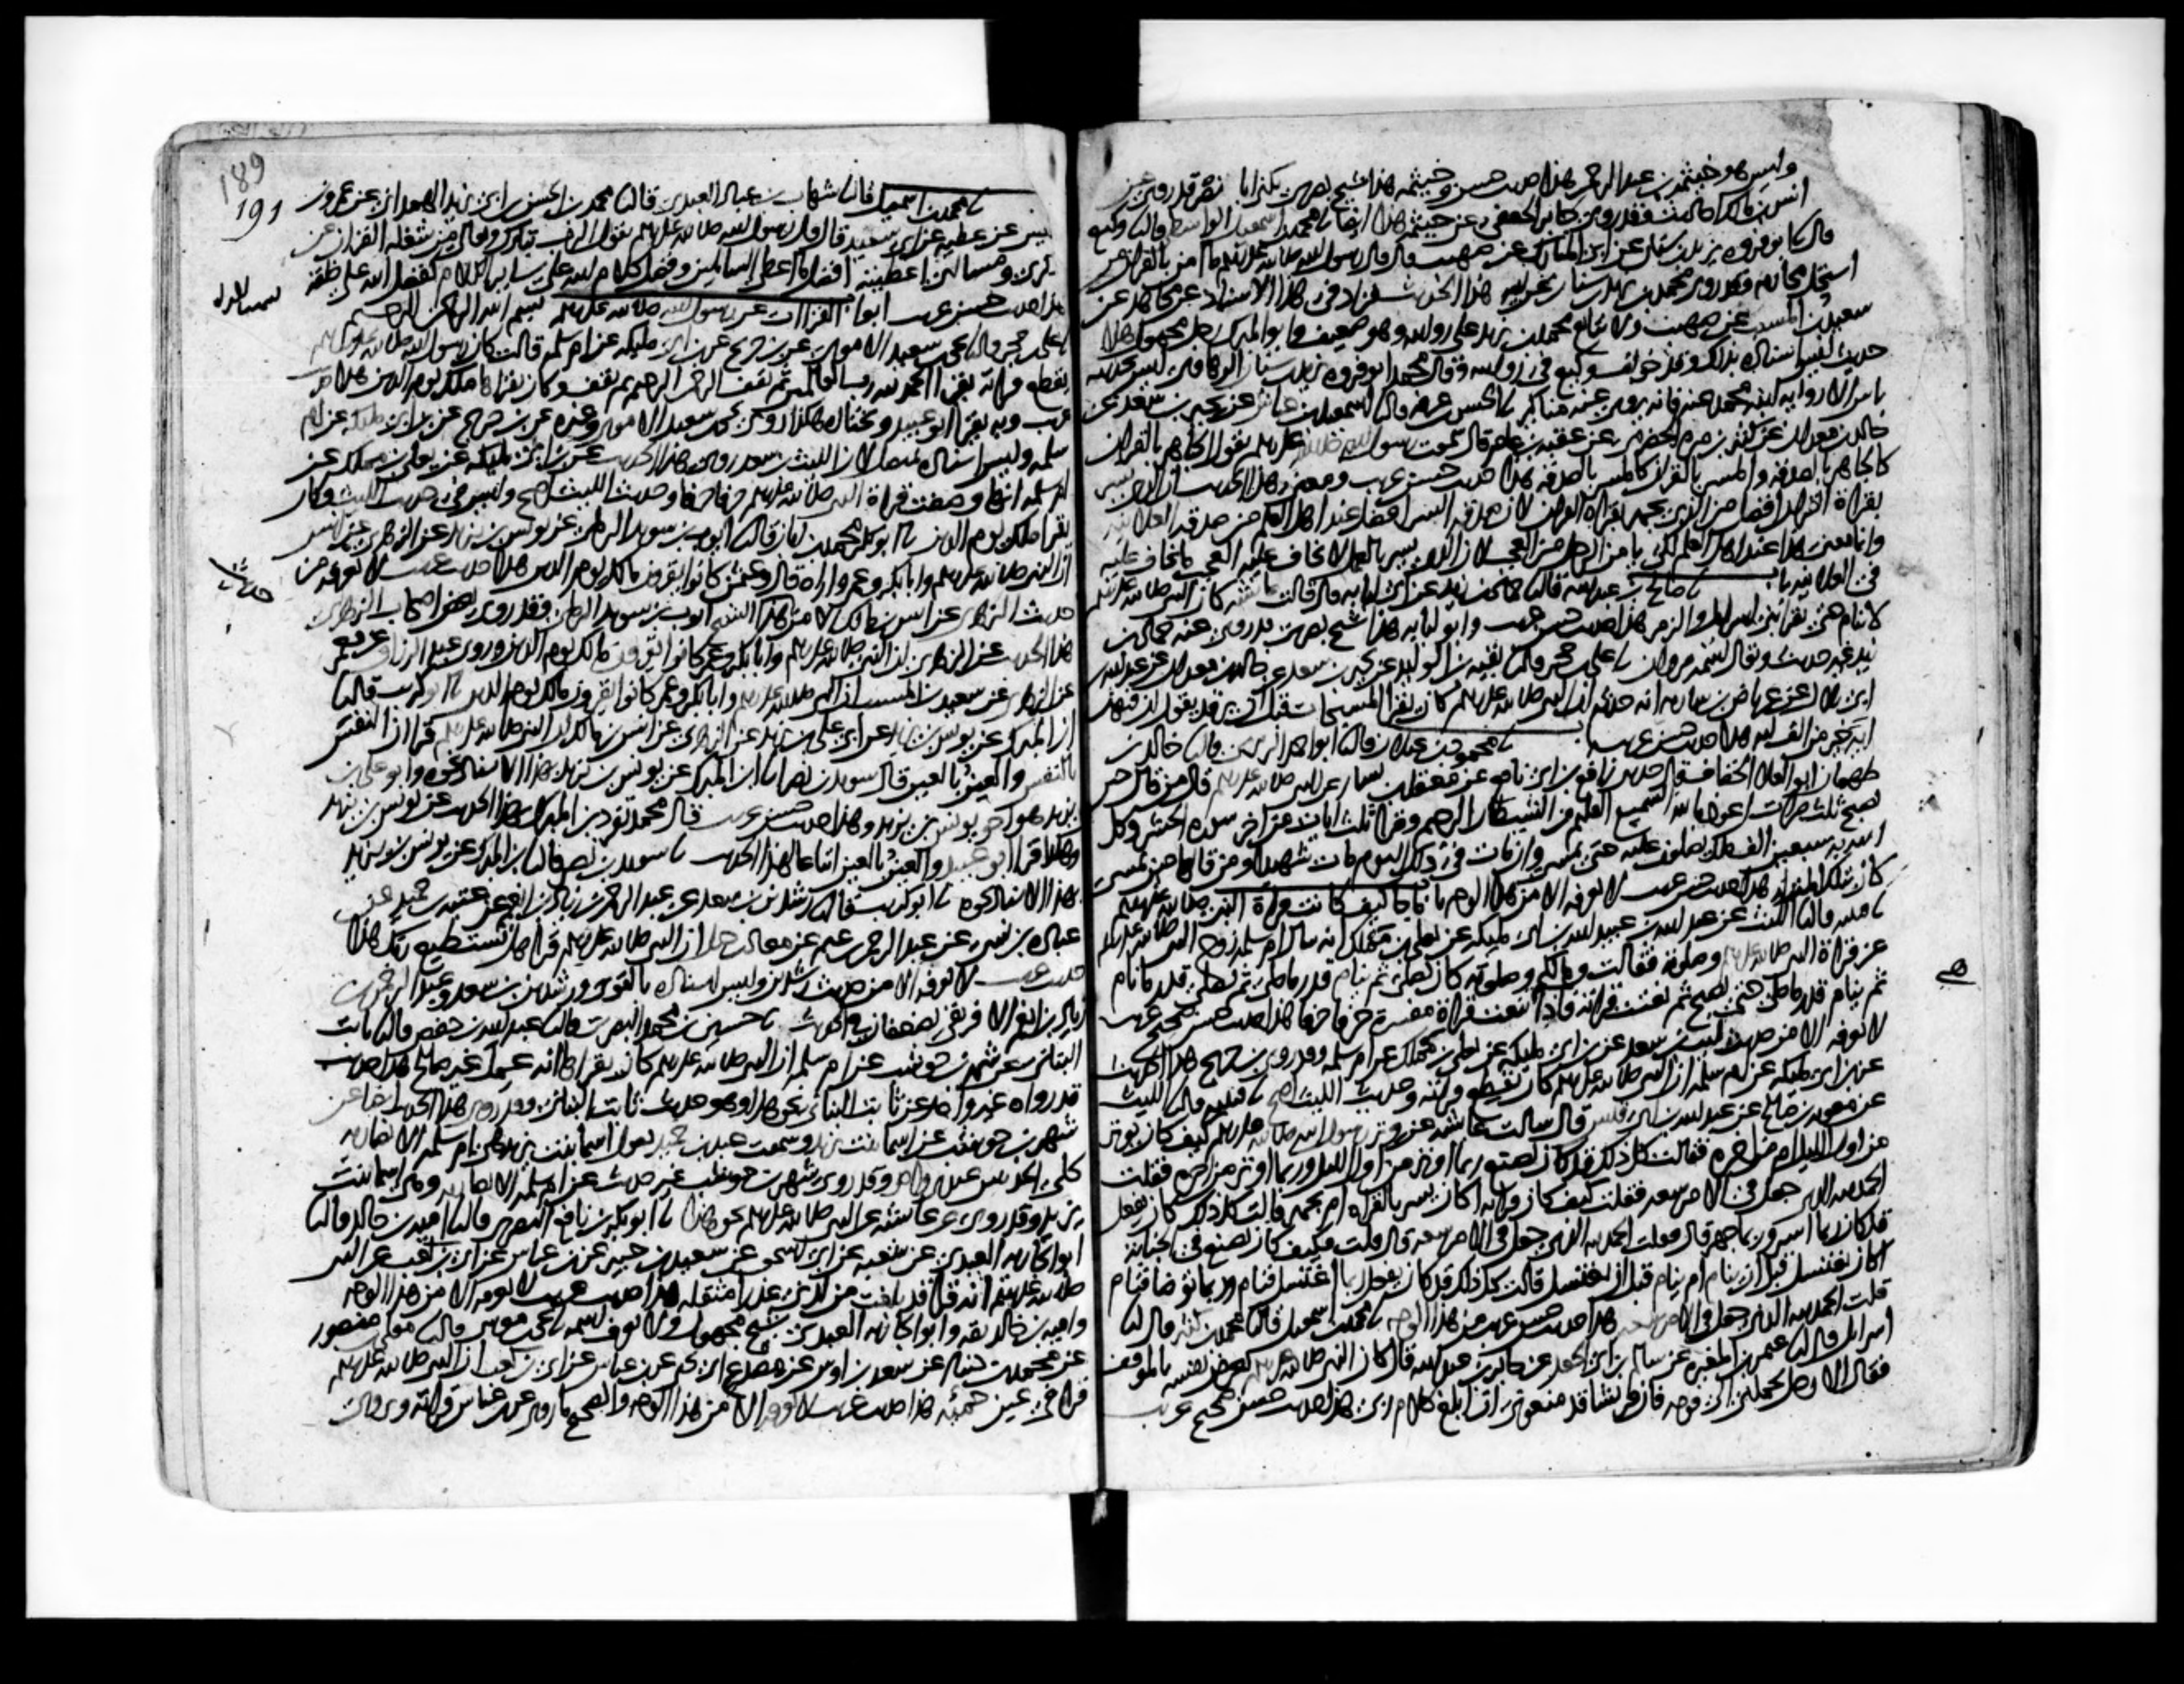 وليس هو خيثمة بن عبد الرحمن هذا حديث حسن وخيثمة هذا شيخ بصري يكنى ابا نصر قد روى عن
انس بن مالك احاديث وقد روى جابر الجعفي عن خيثمة هذا ايضا نا محمد بن اسمعيل الواسطي قال نا وكيع
قال نا ابو فروة يزيد بن سنان عن ابي المبارك عن صهيب قال قال رسول الله صلى الله عليه وسلم ما امن بالقران من
استحل محارمه وقد روى محمد بن يزيد بن سنان عن ابيه هذا الحديث فزاد في هذا الاسناد عن مجاهد عن
سعيد بن المسيب عن صهيب ولا يتابع محمد بن يزيد على روايته وهو ضعيف وابو المبارك رجل مجهول هذا
حديث ليس اسناده بذاك وقد خولف وكيع في روايته وقال محمد ابو فروة يزيد بن سنان الرهاوي ليس بحديثه
باس الا رواية ابنه محمد عنه فانه يروي عنه مناكير نا الحسن بن عرفة قال نا اسمعيل بن عياش عن بحير بن سعد عن
خالد بن معدان عن كثير بن مرة الحضرمي عن عقبة بن عامر قال سمعت رسول الله صلى الله عليه وسلم يقول الجاهر بالقران
كالجاهر بالصدقة والمسر بالقران كالمسر بالصدقة هذا حديث حسن غريب ومعنى هذا الحديث ان الذي يسر
بقراة القران افضل من الذي يجهر بقراة القران لان صدقة السر افضل عند اهل العلم من صدقة العلانية
وانما معنى هذا عند اهل العلم لكي يامن الرجل من العجب لان الذي يسر بالعمل لا يخاف عليه العجب ما يخاف عليه
في العلانية باب نا صالح بن عبد الله قال نا حماد بن زيد عن ابي لبابة قال قالت عائشة كان النبي صلى الله عليه وسلم
لا ينام حتى يقرا بني اسرايل والزمر هذا حديث حسن غريب وابو لبابة هذا شيخ بصري قد روى عنه حماد بن
زيد غير حديث ويقال اسمه مروان نا علي بن حجر قال نا بقية بن الوليد عن بحير بن سعد عن خالد بن معدان عن عبد الله
ابن بلال عن عرباض بن سارية انه حدثه ان النبي صلى الله عليه وسلم كان يقرا المسبحات قبل ان يرقد يقول ان فيهن
اية خير من الف اية هذا حديث حسن غريب نا محمود بن غيلان قال نا ابو احمد الزبيري قال نا خالد بن
طهمان ابو العلا الخفاف قال حدثني نافع بن ابي نافع عن معقل بن يسار عن النبي صلى الله عليه وسلم قال من قال حين
يصبح ثلث مرات اعوذ بالله السميع العليم من الشيطان الرجيم وقرا ثلث ايات من اخر سورة الحشر وكل
الله به سبعين الف ملك يصلون عليه حتى يمسي وان مات في ذلك اليوم مات شهيدا ومن قالها حين يمسي
كان بتلك المنزلة هذا حديث حسن غريب لا نعرفه الا من هذا الوجه باب ما جا كيف كانت قراة النبي صلى الله عليه وسلم
نا قتيبة قال نا الليث عن عبد الله بن عبيد الله بن ابي مليكة عن يعلى بن مملك انه سال ام سلمة زوج النبي صلى الله عليه وسلم
عن قراة النبي صلى الله عليه وسلم وصلوته فقالت وما لكم وصلوته كان يصلي ثم ينام قدر ما صلى ثم يصلي قدر ما نام
ثم ينام قدر ما صلى حتى يصبح ثم نعتت قراته فاذا هي تنعت قراة مفسرة حرفا حرفا هذا حديث حسن صحيح غريب
لا نعرفه الا من حديث ليث بن سعد عن ابن ابي مليكة عن يعلى بن مملك عن ام سلمة وقد روى ابن جريج هذا الحديث
عن ابن ابي مليكة عن ام سلمة ان النبي صلى الله عليه وسلم كان يقطع قراته وحديث الليث اصح نا قتيبة قال نا الليث
عن معوية بن صالح عن عبد الله بن ابي قيس قال سالت عائشة عن وتر رسول الله صلى الله عليه وسلم كيف كان يوتر
من اول الليل ام من اخره فقالت كل ذلك قد كان يصنع ربما اوتر من اول الليل وربما اوتر من اخره فقلت
الحمد لله الذي جعل في الامر سعة فقلت كيف كان قراته اكان يسر بالقراة ام يجهر قالت كل ذلك كان يفعل
قد كان ربما اسر وربما جهر قال فقلت الحمد لله الذي جعل في الامر سعة قال قلت فكيف كان يصنع في الجنابة
اكان يغتسل قبل ان ينام ام ينام قبل ان يغتسل قالت كل ذلك قد كان يفعل ربما اغتسل فنام وربما توضا فنام
قلت الحمد لله الذي جعل في الامر سعة هذا حديث حسن غريب من هذا الوجه نا محمد بن اسمعيل قال نا محمد بن كثير قال نا
اسرايل قال نا عثمن بن المغيرة عن سالم بن ابي الجعد عن جابر بن عبد الله قال كان النبي صلى الله عليه وسلم يعرض نفسه بالموقف
فقال الا رجل يحملني الى قومه فان قريشا قد منعوني ان ابلغ كلام ربي هذا حديث حسن صحيح غريب
189
191
نا محمد بن اسمعيل قال نا شهاب بن عباد العبدي قال نا محمد بن الحسن بن ابي يزيد الهمداني عن عمرو بن
قيس عن عطية عن ابي سعيد قال قال رسول الله صلى الله عليه وسلم يقول الرب تبارك وتعالى من شغله القران عن
ذكري ومسالتي اعطيته افضل ما اعطي السايلين وفضل كلام الله على ساير الكلام كفضل الله على خلقه
هذا حديث حسن غريب ابواب القراات عن رسول الله صلى الله عليه وسلم بسم الله الرحمن الرحيم
نا علي بن حجر قال نا يحيى بن سعيد الاموي عن ابن جريج عن ابن ابي مليكة عن ام سلمة قالت كان رسول الله صلى الله عليه وسلم
يقطع قراته يقرا الحمد لله رب العالمين ثم يقف الرحمن الرحيم ثم يقف وكان يقراها ملك يوم الدين هذا حديث
غريب وبه يقرا ابو عبيد ويختاره هكذا روى يحيى بن سعيد الاموي وغيره عن ابن جريج عن ابن ابي مليكة عن ام
سلمة وليس اسناده بمتصل لان الليث بن سعد روى هذا الحديث عن ابن ابي مليكة عن يعلى بن مملك عن
ام سلمة انها وصفت قراة النبي صلى الله عليه وسلم حرفا حرفا وحديث الليث اصح وليس في حديث الليث وكان
يقرا ملك يوم الدين نا ابو بكر محمد بن ابان قال نا ايوب بن سويد الرملي عن يونس بن يزيد عن الزهري عن انس
ان النبي صلى الله عليه وسلم وابا بكر وعمر واراه قال وعثمن كانوا يقرون مالك يوم الدين هذا حديث غريب لا نعرفه من
حديث الزهري عن انس بن مالك الا من هذا الشيخ ايوب بن سويد الرملي وقد روى بعض اصحاب الزهري
هذا الحديث عن الزهري ان النبي صلى الله عليه وسلم وابا بكر وعمر كانوا يقرون مالك يوم الدين وروى عبد الرزاق عن معمر
عن الزهري عن سعيد بن المسيب ان النبي صلى الله عليه وسلم وابا بكر وعمر كانوا يقرون مالك يوم الدين نا ابو كريب قال نا
ابن المبارك عن يونس بن يزيد عن ابي علي بن يزيد عن الزهري عن انس بن مالك ان النبي صلى الله عليه وسلم قرا ان النفس
بالنفس والعين بالعين قال سويد بن نصر نا ابن المبارك عن يونس بن يزيد بهذا الاسناد نحوه وابو علي بن
يزيد هو اخو يونس بن يزيد وهذا حديث حسن غريب قال محمد تفرد ابن المبارك بهذا الحديث عن يونس بن يزيد
وهكذا قرا ابو عبيد والعين بالعين اتباعا لهذا الحديث نا سويد بن نصر قال نا ابن المبارك عن يونس بن يزيد
بهذا الاسناد نحوه نا ابو كريب قال نا رشدين بن سعد عن عبد الرحمن بن زياد بن انعم عن عتبة بن حميد عن
عبادة بن نسي عن عبد الرحمن بن غنم عن معاذ بن جبل ان النبي صلى الله عليه وسلم قرا هل تستطيع ربك هذا
حديث غريب لا نعرفه الا من حديث رشدين وليس اسناده بالقوي ورشدين بن سعد وعبد الرحمن بن
زياد بن انعم الافريقي يضعفان في الحديث نا حسين بن محمد البصري قال نا عبد الله بن حفص قال نا ثابت
البناني عن شهر بن حوشب عن ام سلمة ان النبي صلى الله عليه وسلم كان يقراها انه عمل غير صالح هذا حديث
قد رواه غير واحد عن ثابت البناني نحو هذا وهو حديث ثابت البناني وقد روي هذا الحديث ايضا عن
شهر بن حوشب عن اسما بنت يزيد وسمعت عبد بن حميد يقول اسما بنت يزيد هي ام سلمة الانصارية
كلي الحديثين عندي واحد وقد روى شهر بن حوشب غير حديث عن ام سلمة الانصارية وهي اسما بنت
يزيد وقد روي عن عائشة عن النبي صلى الله عليه وسلم نحو هذا نا ابو بكر بن نافع البصري قال نا امية بن خالد قال نا
ابو الجارية العبدي عن شعبة عن ابي اسحق عن سعيد بن جبير عن ابن عباس عن ابي بن كعب عن النبي
صلى الله عليه وسلم انه قرا قد بلغت من لدني عذرا مثقلة هذا حديث غريب لا نعرفه الا من هذا الوجه
وامية بن خالد ثقة وابو الجارية العبدي شيخ مجهول ولا نعرف اسمه نا يحيى بن موسى قال نا معلى بن منصور
عن محمد بن دينار عن سعد بن اوس عن مصدع ابي يحيى عن ابن عباس عن ابي بن كعب ان النبي صلى الله عليه وسلم
قرا في عين حمئة هذا حديث غريب لا نعرفه الا من هذا الوجه والصحيح ما روي عن ابن عباس قراته ويروى